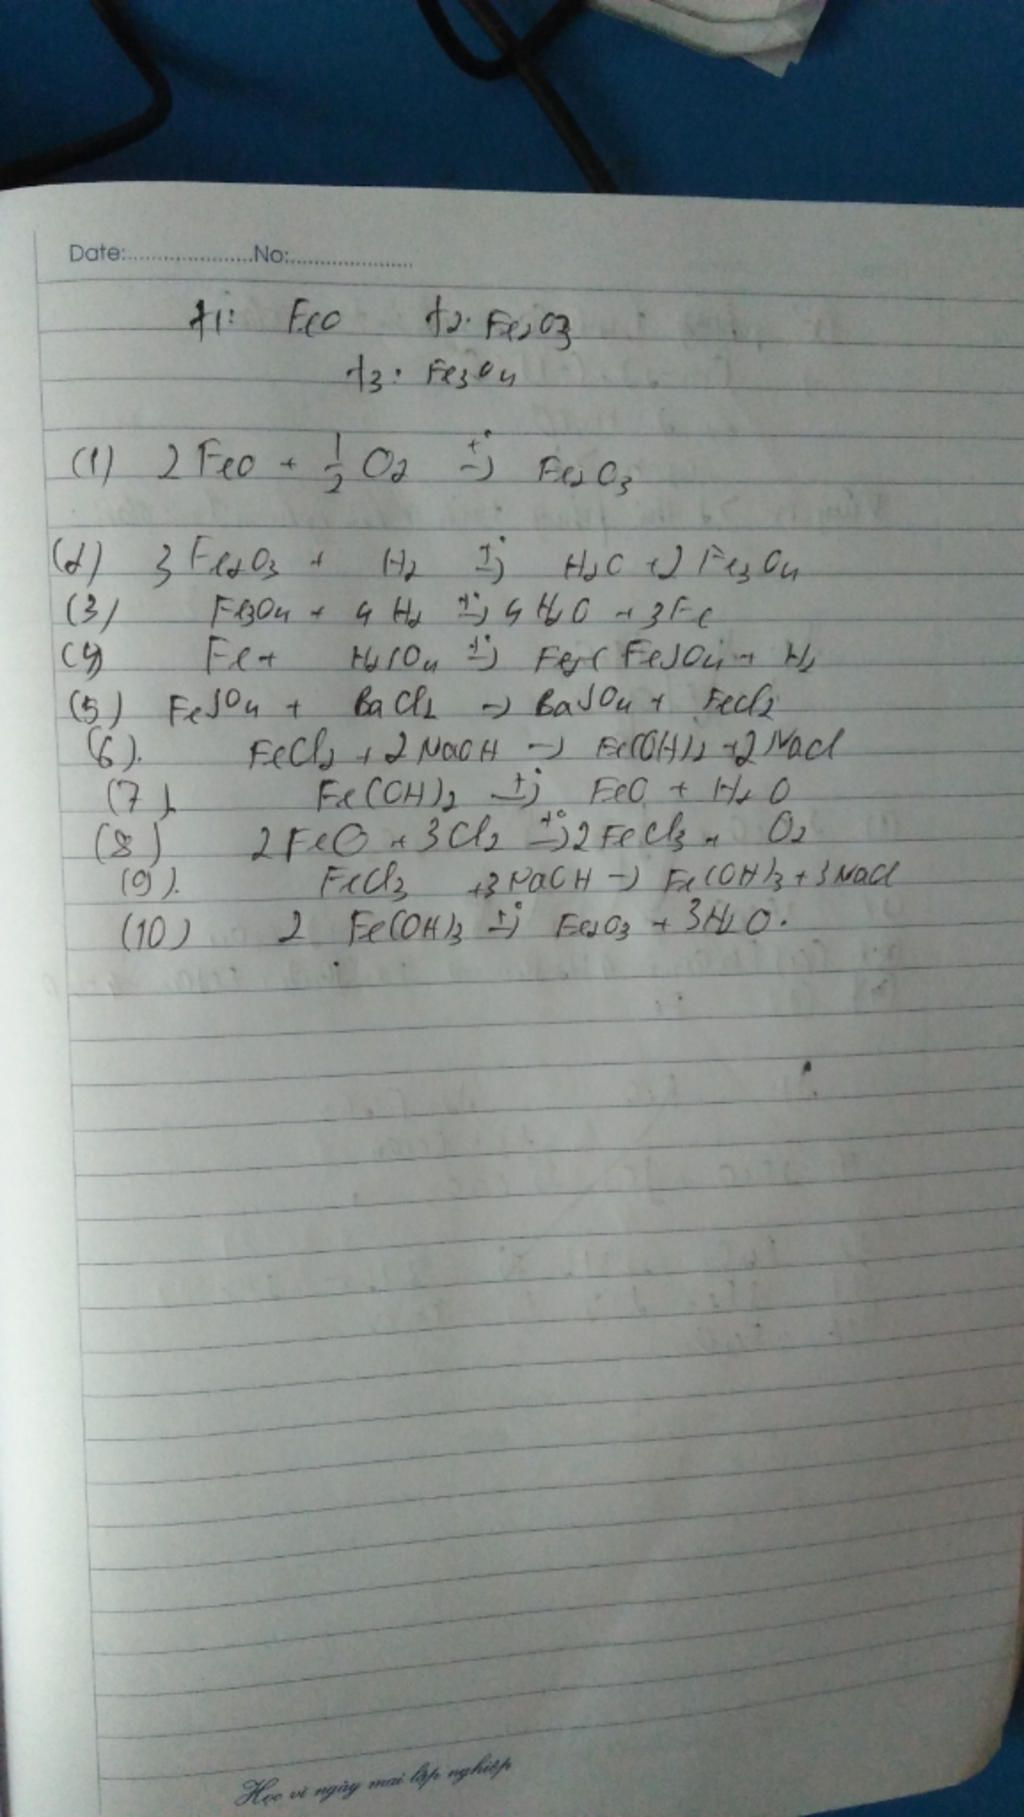 Date:....................No:....................
t1: FeO t2. Fe2O3
t3. Fe3O4
(1) 2FeO + 1/2 O2 t°→ Fe2O3
(2) 3Fe2O3 + H2 t°→ H2O + 2Fe3O4
(3) Fe3O4 + 4H2 t°→ 4H2O + 3Fe
(4) Fe + H2SO4 → FeSO4 + H2
(5) FeSO4 + BaCl2 → BaSO4 + FeCl2
(6). FeCl2 + 2NaOH → Fe(OH)2 + 2NaCl
(7). Fe(OH)2 t°→ FeO + H2O
(8) 2FeO + 3Cl2 t°→ 2FeCl3 + O2
(9). FeCl3 +3NaOH → Fe(OH)3 + 3NaCl
(10) 2 Fe(OH)3 t°→ Fe2O3 + 3H2O.
Học vì ngày mai lập nghiệp